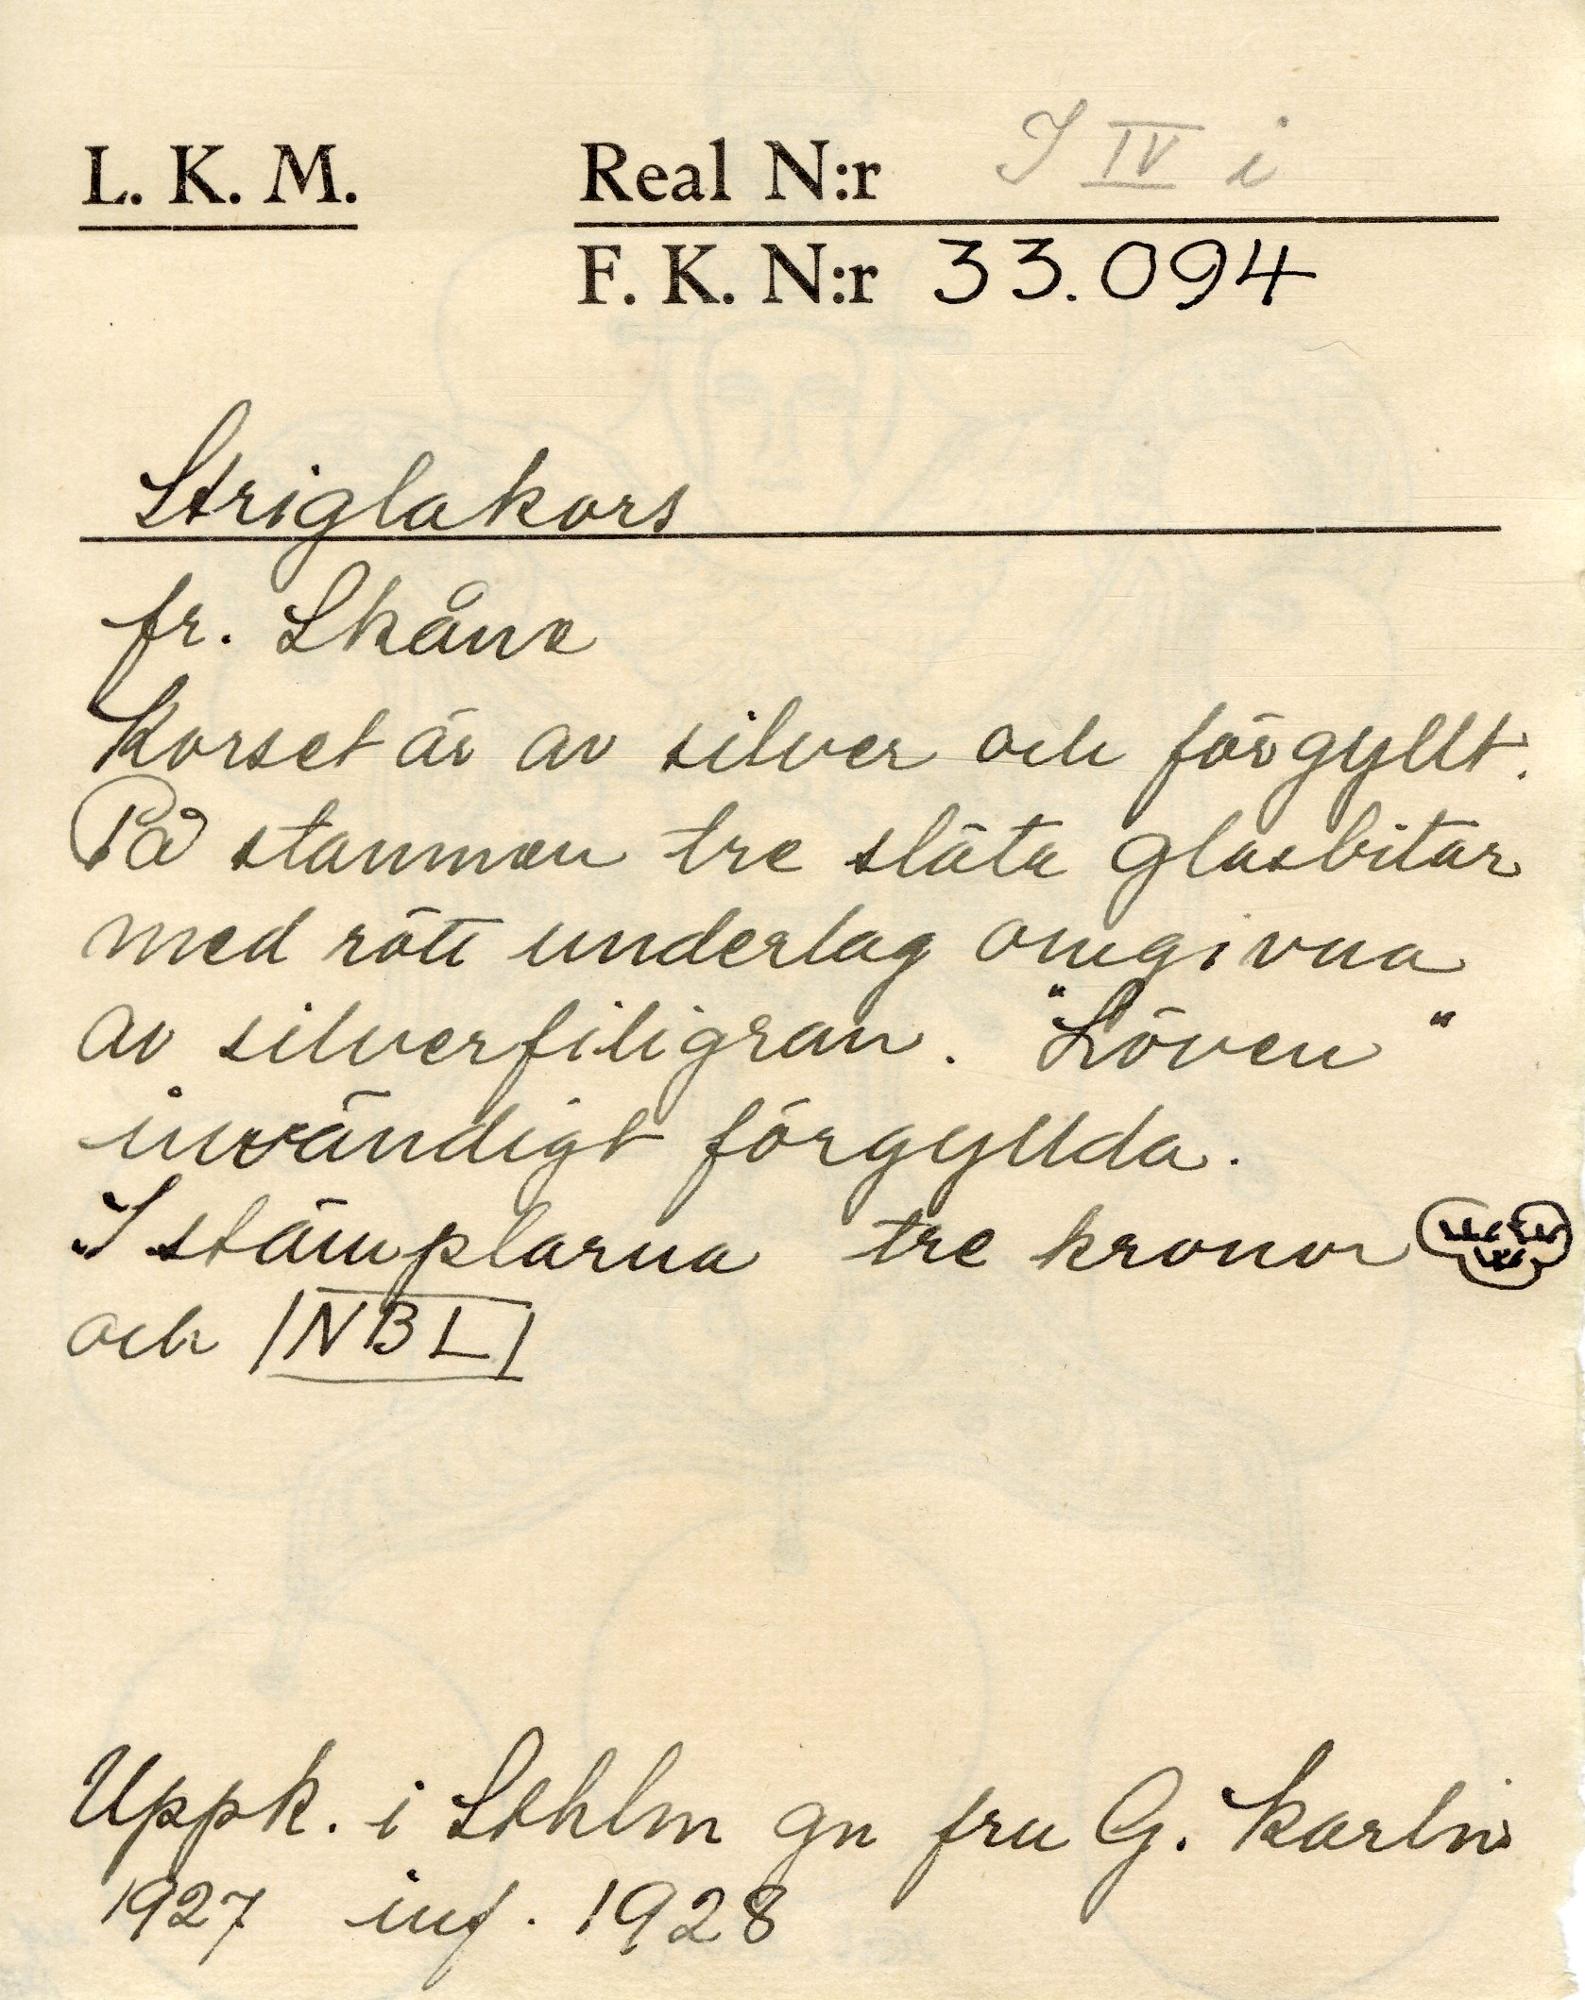 L. K. M.
Real N:r I IV i
F. K. N:r 33.094
Striglakors
fr. Skåne
Korset är av silver och förgyllt.
På stammen tre släta glasbitar
med rött underlag omgivna
av silverfiligran. "Löven"
invändigt förgyllda.
I stämplarna tre kronor
och NBL
Uppk. i Sthlm gn fru G. Karlin
1927 inf. 1928